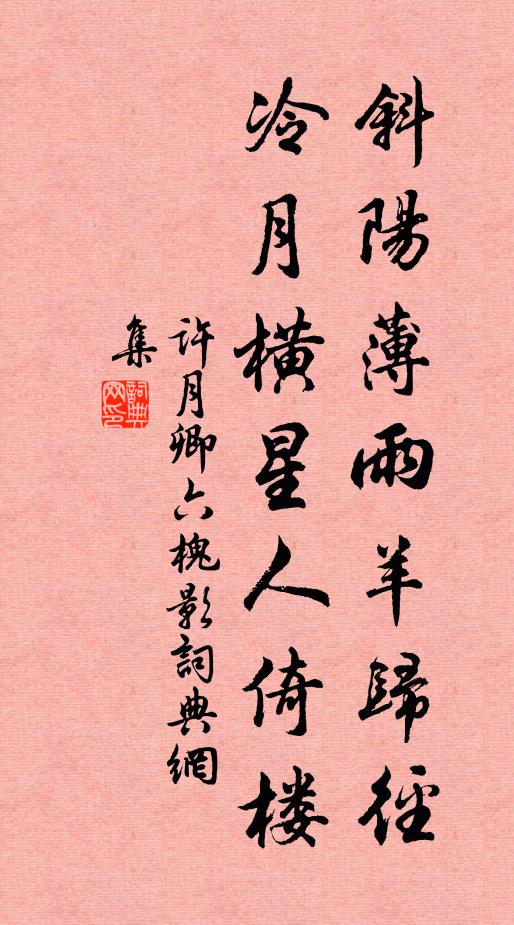 斜陽薄雨羊歸徑
冷月橫星人倚楼
许月卿六槐影詞典網
集
詞典網印